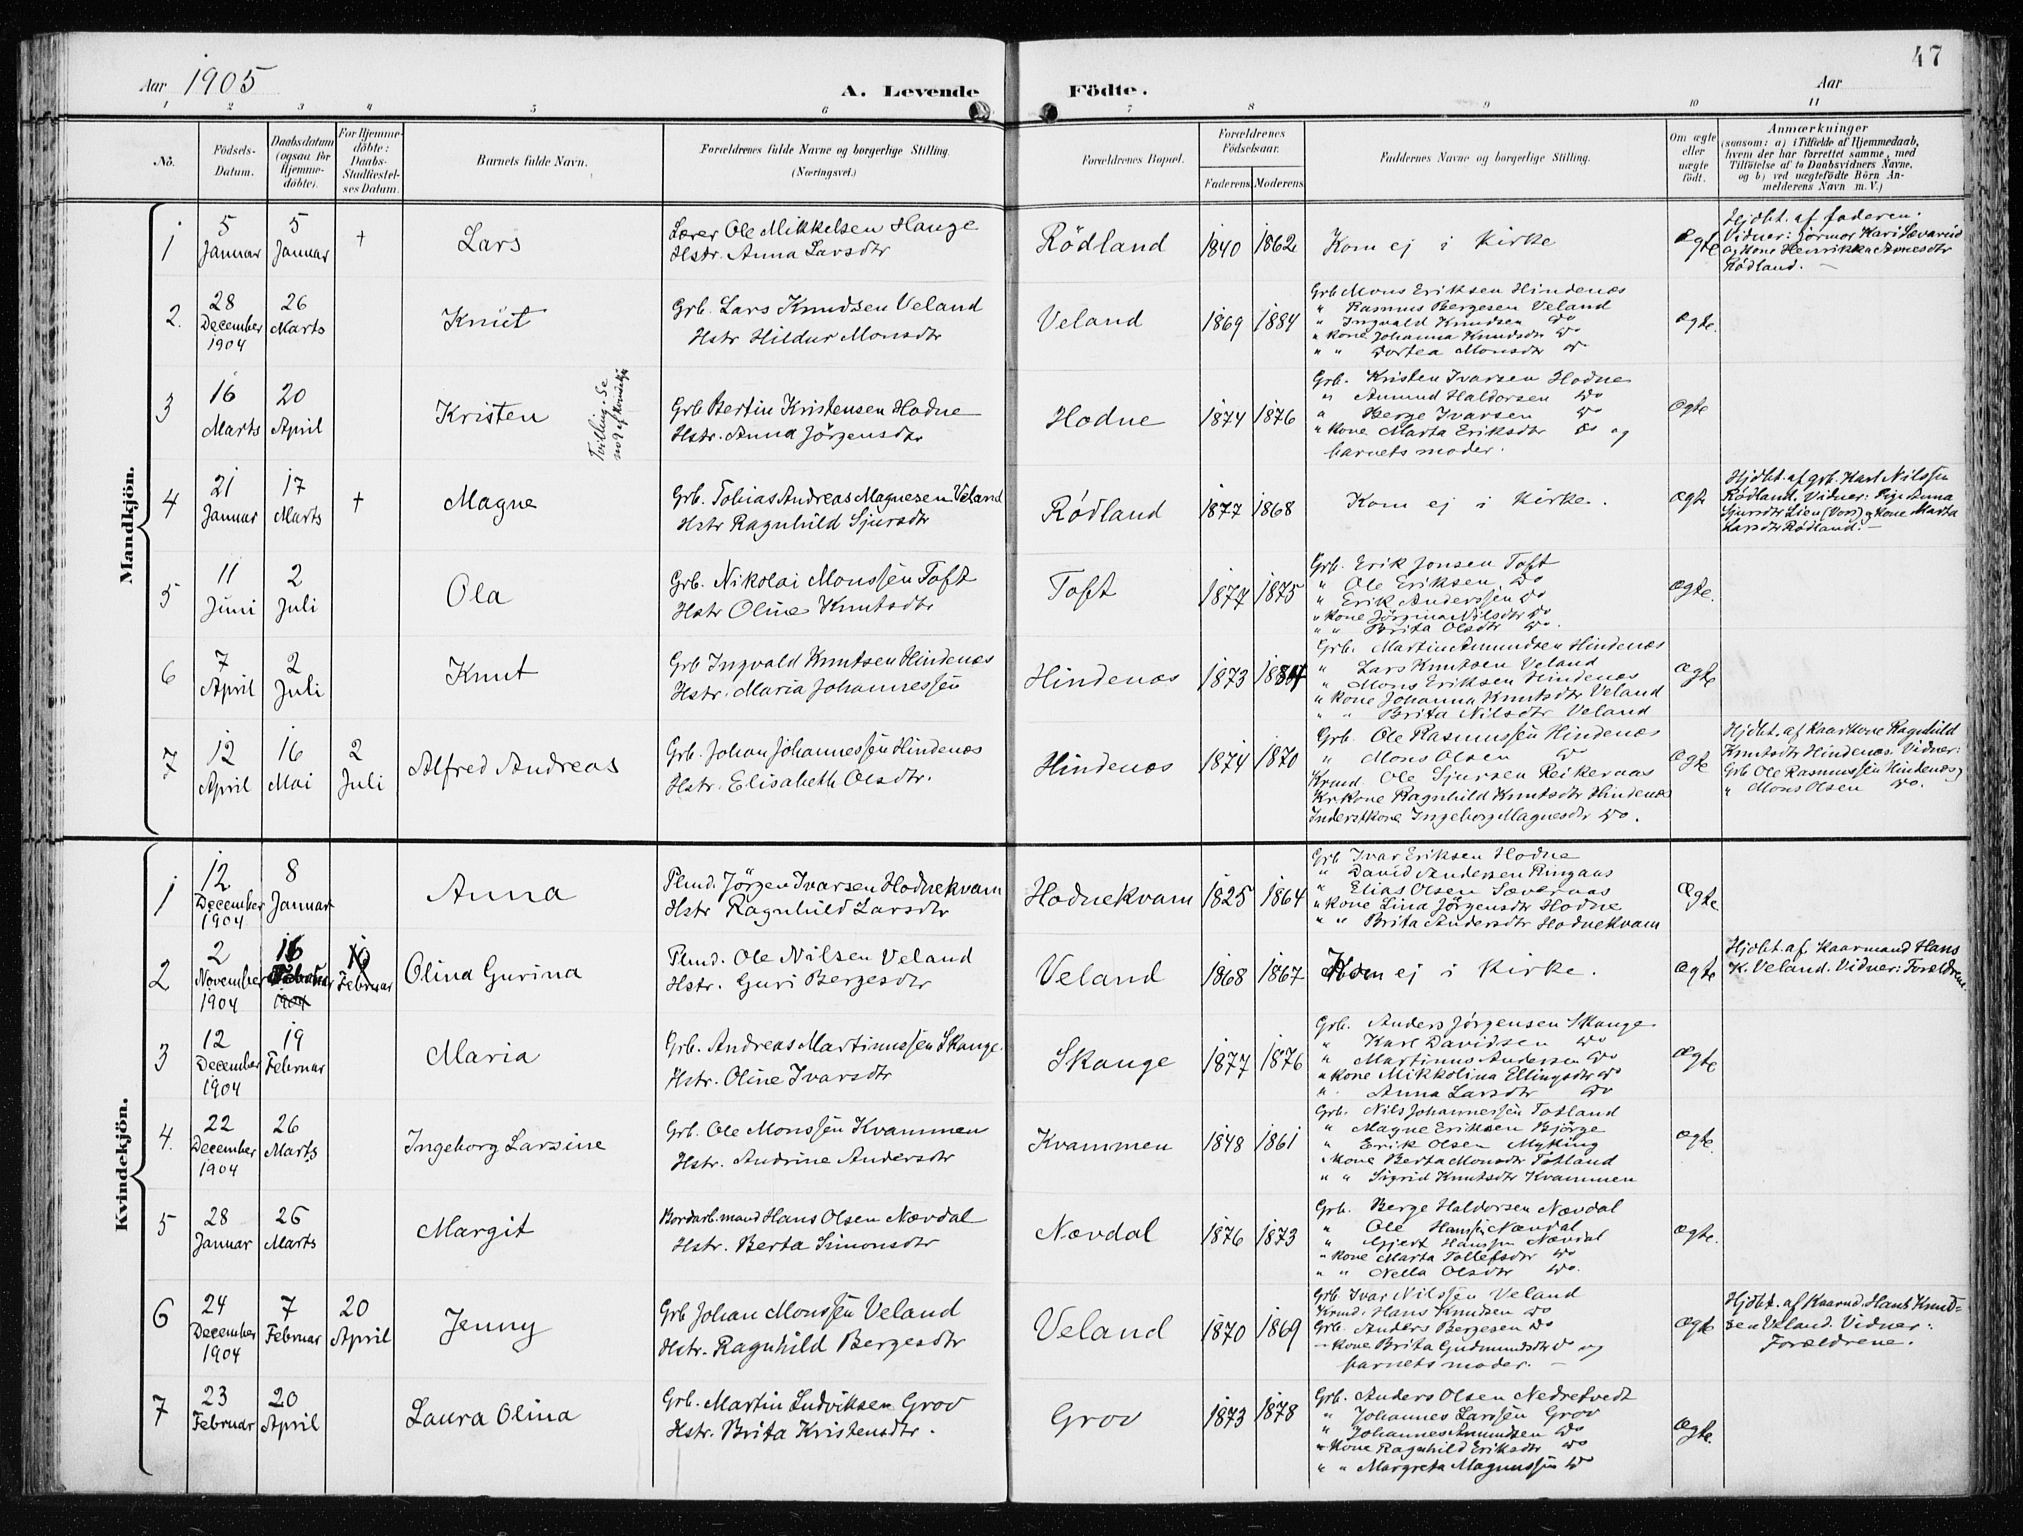 47
Aar 1905
A. Levende Födte.
Aar
1 2 3 4 5 6 7 8 9 10 11
No.
Födsels-Datum.
Daabsdatum (ogsaa for Hjemme-döbte).
For Hjemme-döbte: Daabs-Stadfæstel-ses Datum.
Barnets fulde Navn.
Forældrenes fulde Navne og borgerlige Stilling.
(Næringsvei.)
Forældrenes Bopæl.
Forældrenes Födselsaar.
Faderens. Moderens.
Faddernes Navne og borgerlige Stilling.
Om ægte eller uægte födt.
Anmærkninger
(saasom: a) i Tilfælde af Hjemmedaab,
hvem der har forrettet samme, med
Tilföielse af to Daabsvidners Navne,
og b) ved uægtefödte Börn An-
melderens Navn m. V.)
Mandkjön.
1 5 Januar 5 Januar † Lars
Lærer Ole Mikkelsen Hauge
Hstr. Anna Larsdtr
Rödland 1840 1862 Kom ej i kirke Ægte
Hjdbt. af faderen.
Vidner: jormor Kari Sævareid
og kone Henrikka Arnesdtr
Rödland. —
2. 28 December 1904 26 Marts Knut
Grb. Lars Knudsen Veland
Hstr Hildur Monsdtr
Veland 1869 1884
Grb Mons Eriksen Hindenæs
" Rasmus Bergesen Veland
" Ingvald Knudsen do
" kone Johanna Knudsdtr do
" " Dortea Monsdtr do
Ægte.
3 16 Marts 20 April Kristen
Tvilling. Se no 9 af kvindekjø
Grb Bertin Kristensen Hodne
Hstr. Anna Jörgensdtr
Hodne 1874 1876
Grb. Kristen Ivarsen Hodne
" Amund Haldorsen do
" Berge Ivarsen do
" kone Marta Eriksdtr do og
barnets moder.
Ægte
4 21 Januar 17 Marts † Magne
Grb. Tobias Andreas Magnesen Veland
Hstr Ragnhild Sjursdtr
Rödland 1877 1868 Kom ej i kirke. Ægt
Hjdbt. af grb. Karl Nilssen
Rödland. Vidner: Pige Anna
Sjursdtr Lien (Vors) og kone Marta
Larsdtr Rödland. —
5 11 Juni 2 Juli Ola
Grb. Nikolai Monssen Toft
Hstr Oline Knutsdtr
Toft 1877 1875
Grb. Erik Jonsen Toft
" Ole Eriksen do
" Erik Anderssen do
" kone Jörgina Nilsdtr do
" " Brita Olsdtr do.
Ægte.
6 7 April 2 Juli Knut
Grb Ingvald Knutsen Hindenæs
Hstr. Maria Johannessen
Hindenæs 1873 1884
Grb. Martin Amundsen Hindenæs
" Lars Knutsen Veland
" Mons Eriksen Hindenæs
" kone Johanna Knutsdtr Veland
" " Brita Nilsdtr Veland
Ægte
7 12 April 16 Mai 2 Juli Alfred Andreas
Grb. Johan Johannessen Hindenæs
Hstr. Elisabeth Olsdtr.
Hindenæs 1874 1870
Grb. Ole Rasmussen Hindenæs
" Mons Olsen do
Krmd. Ole Sjursen Reikeraas
Kr kone Ragnhild Knutsdtr Hindenæs
Inderstkone Ingeborg Magnesdtr do.
Ægte
Hjdbt. af kaarkone Ragnhild
Knutsdtr Hindenæs. Vidner:
Grb Ole Rasmussen Hindenæs og
" Mons Olsen do.
Kvindekjön.
1 12 December 1904 8 Januar Anna
Plmd. Jörgen Ivarsen Hodnekvam
Hstr Ragnhild Larsdtr
Hodnekvam 1825 1864
Grb Ivar Eriksen Hodne
" David Andersen Ringaas
" Elias Olsen Sæveraas
" kone Lina Jörgensdtr Hodne
" " Brita Andersdtr Hodnekvam
Ægte
2 2 November 1904 16 Februar 1904 Februar Olina Gurina
Plmd. Ole Nilsen Veland
Hstr. Guri Bergesdtr
Veland 1868 1867 Kom ej i kirke. Ægte
Hjdbt. af kaarmand Hans
K. Veland. Vidner: Forældrene.
3 12 December 1904 19 Februar Maria
Grb. Andreas Martinussen Skauge
Hstr. Oline Ivarsdtr
Skauge 1877 1876
Grb. Anders Jörgensen Skauge
" Karl Davidsen do
" Martinus Andersen do
" kone Mikkolina Ellingsdtr do
" Anna Larsdtr do
Ægte
4. 22 December 1904 26 Marts Ingeborg Larsine
Grb. Ole Monssen Kvammen
Hstr. Andrine Andersdtr
Kvammen 1848 1861
Grb. Nils Johannessen Totland
" Magne Eriksen Björge
" Erik Olsen Myking
" kone Berta Monsdtr Totland
" " Sigrid Knutsdtr Kvammen
Ægte.
5 28 Januar 26 Marts Margit
Bordarb.mand Hans Olsen Nævdal
Hstr. Berta Simonsdtr
Nævdal 1876 1873
Grb. Berge Haldorsen Nævdal
" Ole Hanssen Nævdal
" Gjert Hanssen Nævdal
" kone Marta Tollefsdtr do
" " Nella Olsdtr do.
Ægte.
6 24 December 1904 7 Februar 20 April Jenny
Grb Johan Monssen Veland
Hstr. Ragnhild Bergesdtr
Veland 1870 1869
Grb Ivar Nilssen Veland
Krmd. Hans Knudsen do
Grb. Anders Bergesen do
" kone Brita Gudmundsdtr do og
barnets moder. —
Ægte
Hjdbt. af Kaarmd. Hans Knud-
sen Veland. Vidner:
Forældrene.
7 23 Februar 20 April Laura Olina
Grb. Martin Ludviksen Grov
Hstr. Brita Kristensdtr.
Grov 1873 1878
Grb. Anders Olsen Nedretvedt
" Johannes Larssen Grov
" Johannes Amundsen do
" kone Ragnhild Eriksdtr do
" " Margreta Magnussen do
Ægte.